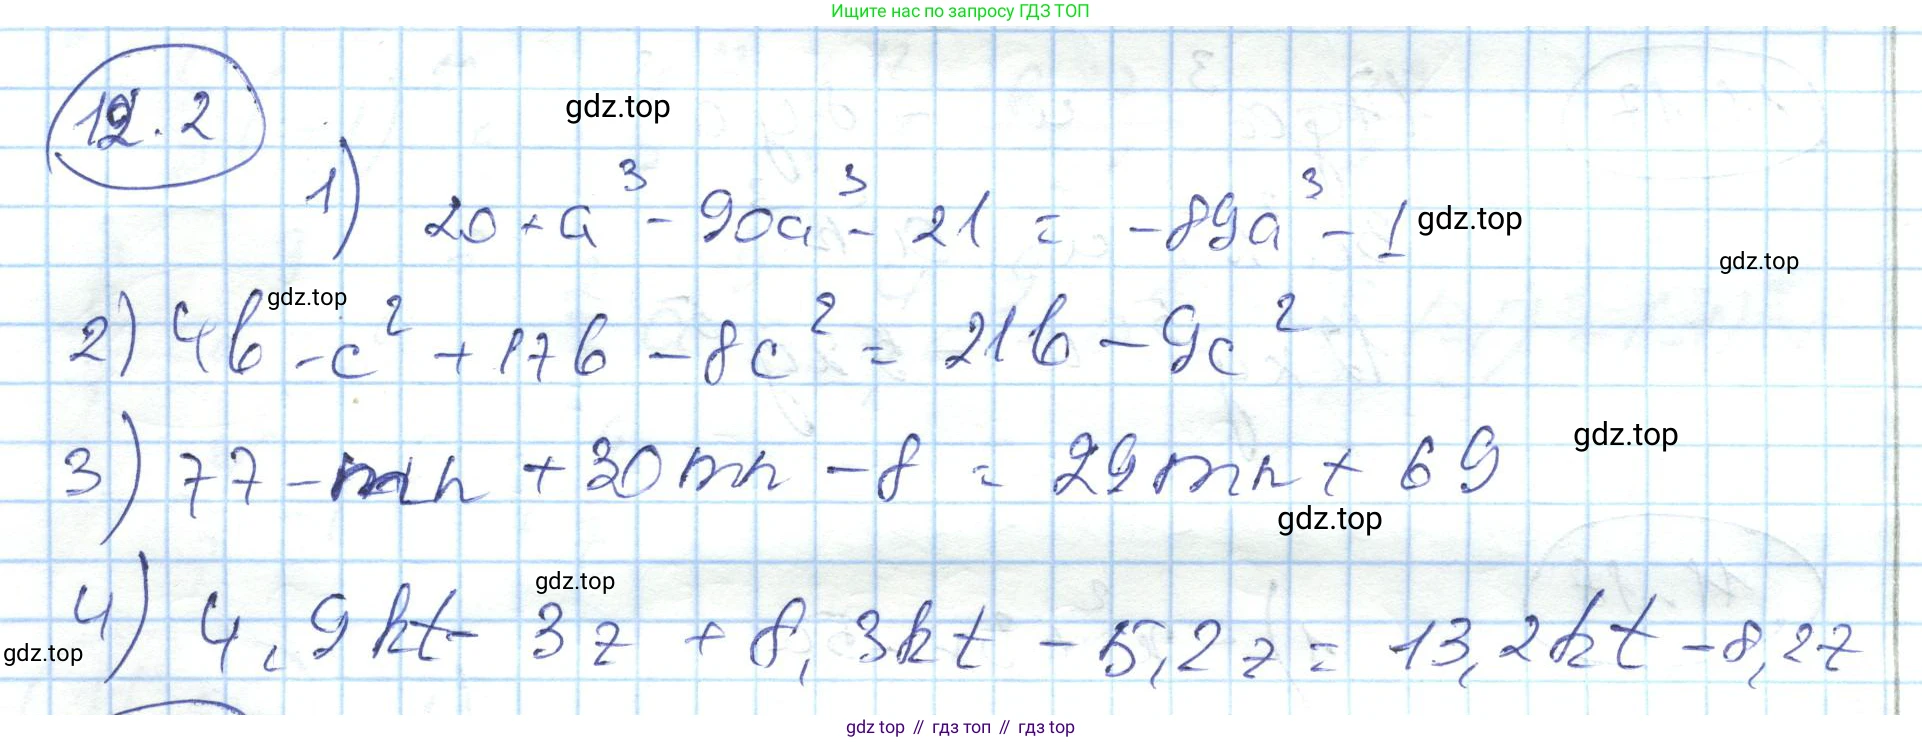 Ищите нас по запросу ГДЗ ТОП
12.2
gdz.top
1) 20 + a³ - 90a³ - 21 = -89a³ - 1
gdz.top
gdz.top
gdz.top
2) 4b - c² + 17b - 8c² = 21b - 9c²
gdz.top
3) 77 - mn + 30mn - 8 = 29mn + 69
gdz.top
gdz.top
4) 4,9kt - 3z + 8,3kt - 5,2z = 13,2kt - 8,2z
gdz.top
gdz top // гдз топ // gdz top